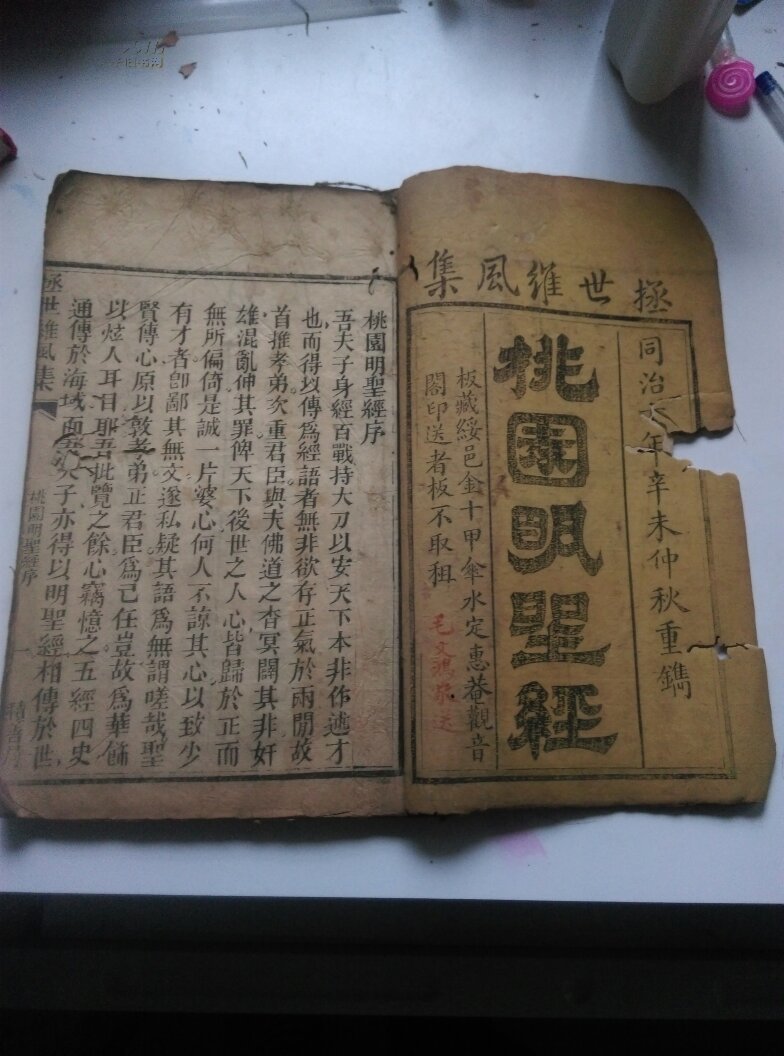 拯世維風集
同治十年辛未仲秋重鐫
桃園明聖經
板藏綏邑金十甲傘水定惠菴觀音
閣印送者板不取租
毛文
送
桃園明聖經序
吾夫子身經百戰持大刀以安天下本非作述才
也而得以傳爲經語者無非欲存正氣於兩閒故
首推孝弟次重君臣與夫佛道之杳冥闢其非奸
雄混亂伸其罪俾天下後世之人心皆歸於正而
無所偏倚是誠一片婆心何人不諒其心以致少
有才者卽鄙其無文遂私疑其語爲無謂嗟哉聖
賢傳心原以敦孝弟正君臣爲己任豈故爲華飾
以炫人耳目耶吾批覽之餘心竊憶之五經四史
通傳於海域而吾夫子亦得以明聖經相傳於世
拯世維風集
桃園明聖經序
一